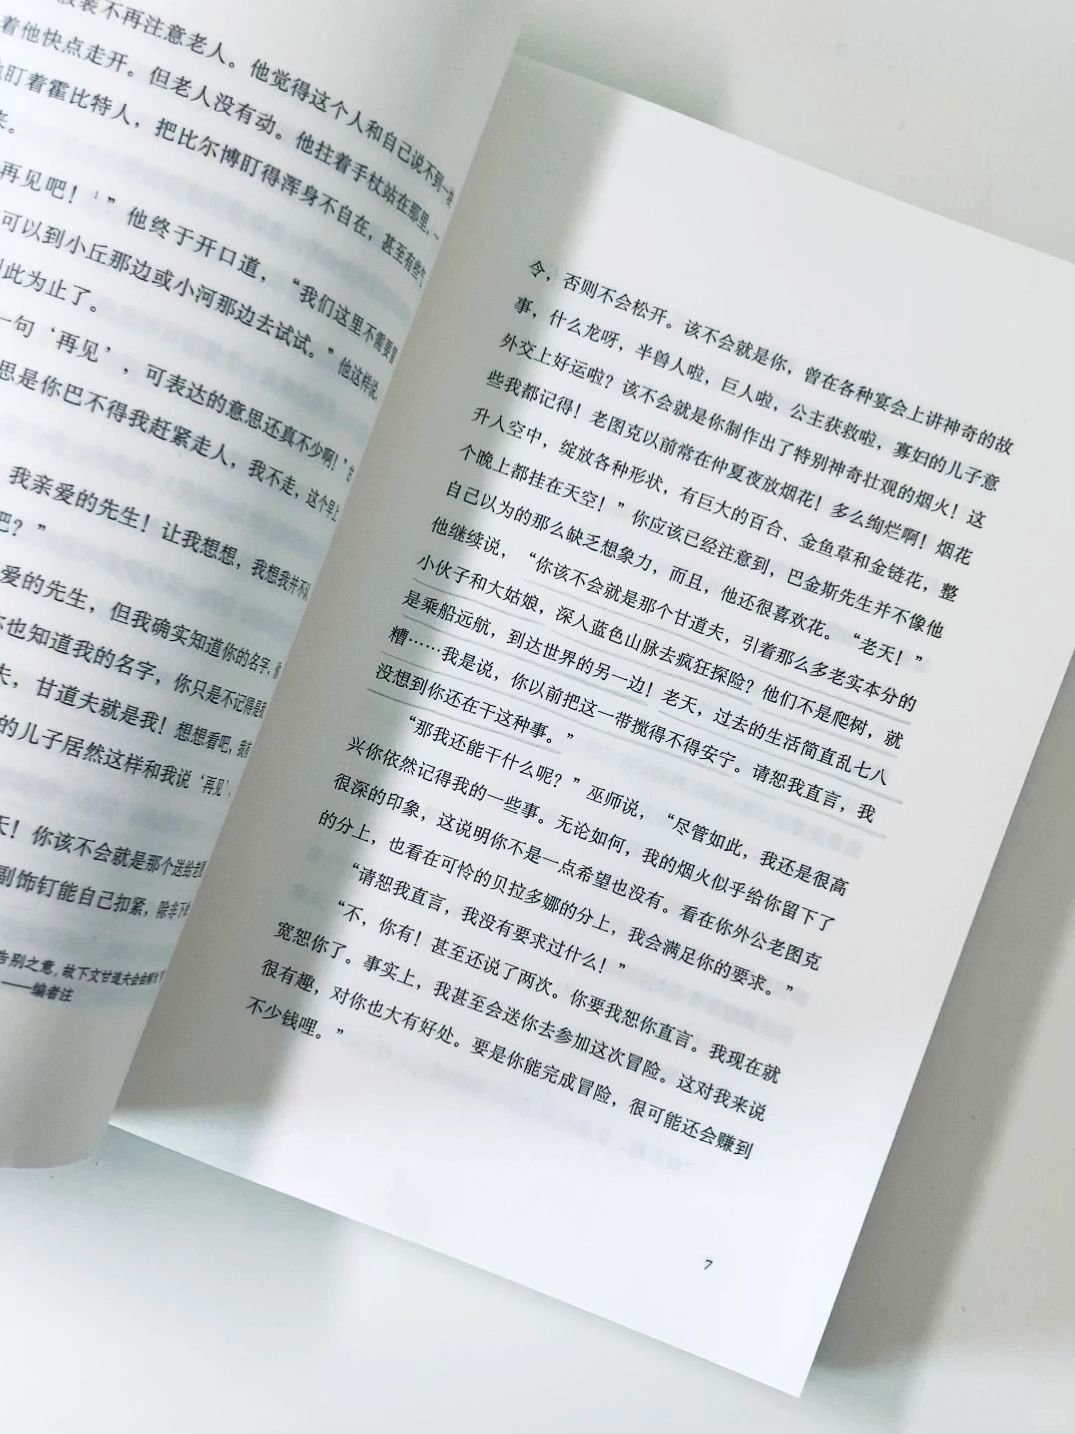 不再注意老人。他觉得这个人和自己说不到一块
着他快点走开。但老人没有动。他拄着手杖站在那里，一
盯着霍比特人，把比尔博盯得浑身不自在，甚至有些
来。
再见吧！¹”他终于开口道，“我们这里不需要
可以到小丘那边或小河那边去试试。”他这样说，
此为止了。
一句‘再见’，可表达的意思还真不少啊！”
思是你巴不得我赶紧走人，我不走，这个早上
我亲爱的先生！让我想想，我想我并不
吧？”
爱的先生，但我确实知道你的名字，
也知道我的名字，你只是不记得
夫，甘道夫就是我！想想看吧，我
的儿子居然这样和我说‘再见’，
天！你该不会就是那个送给老图
副饰钉能自己扣紧，除非下
告别之意，故下文甘道夫会
——编者注
令，否则不会松开。该不会就是你，曾在各种宴会上讲神奇的故
事，什么龙呀，半兽人啦，巨人啦，公主获救啦，寡妇的儿子意
外交上好运啦？该不会就是你制作出了特别神奇壮观的烟火！这
些我都记得！老图克以前常在仲夏夜放烟花！多么绚烂啊！烟花
升入空中，绽放各种形状，有巨大的百合、金鱼草和金链花，整
个晚上都挂在天空！”你应该已经注意到，巴金斯先生并不像他
自己以为的那么缺乏想象力，而且，他还很喜欢花。“老天！”
他继续说，“你该不会就是那个甘道夫，引着那么多老实本分的
小伙子和大姑娘，深入蓝色山脉去疯狂探险？他们不是爬树，就
是乘船远航，到达世界的另一边！老天，过去的生活简直乱七八
糟……我是说，你以前把这一带搅得不得安宁。请恕我直言，我
没想到你还在干这种事。”
“那我还能干什么呢？”巫师说，“尽管如此，我还是很高
兴你依然记得我的一些事。无论如何，我的烟火似乎给你留下了
很深的印象，这说明你不是一点希望也没有。看在你外公老图克
的分上，也看在可怜的贝拉多娜的分上，我会满足你的要求。”
“请恕我直言，我没有要求过什么！”
“不，你有！甚至还说了两次。你要我恕你直言。我现在就
宽恕你了。事实上，我甚至会送你去参加这次冒险。这对我来说
很有趣，对你也大有好处。要是你能完成冒险，很可能还会赚到
不少钱哩。”
7